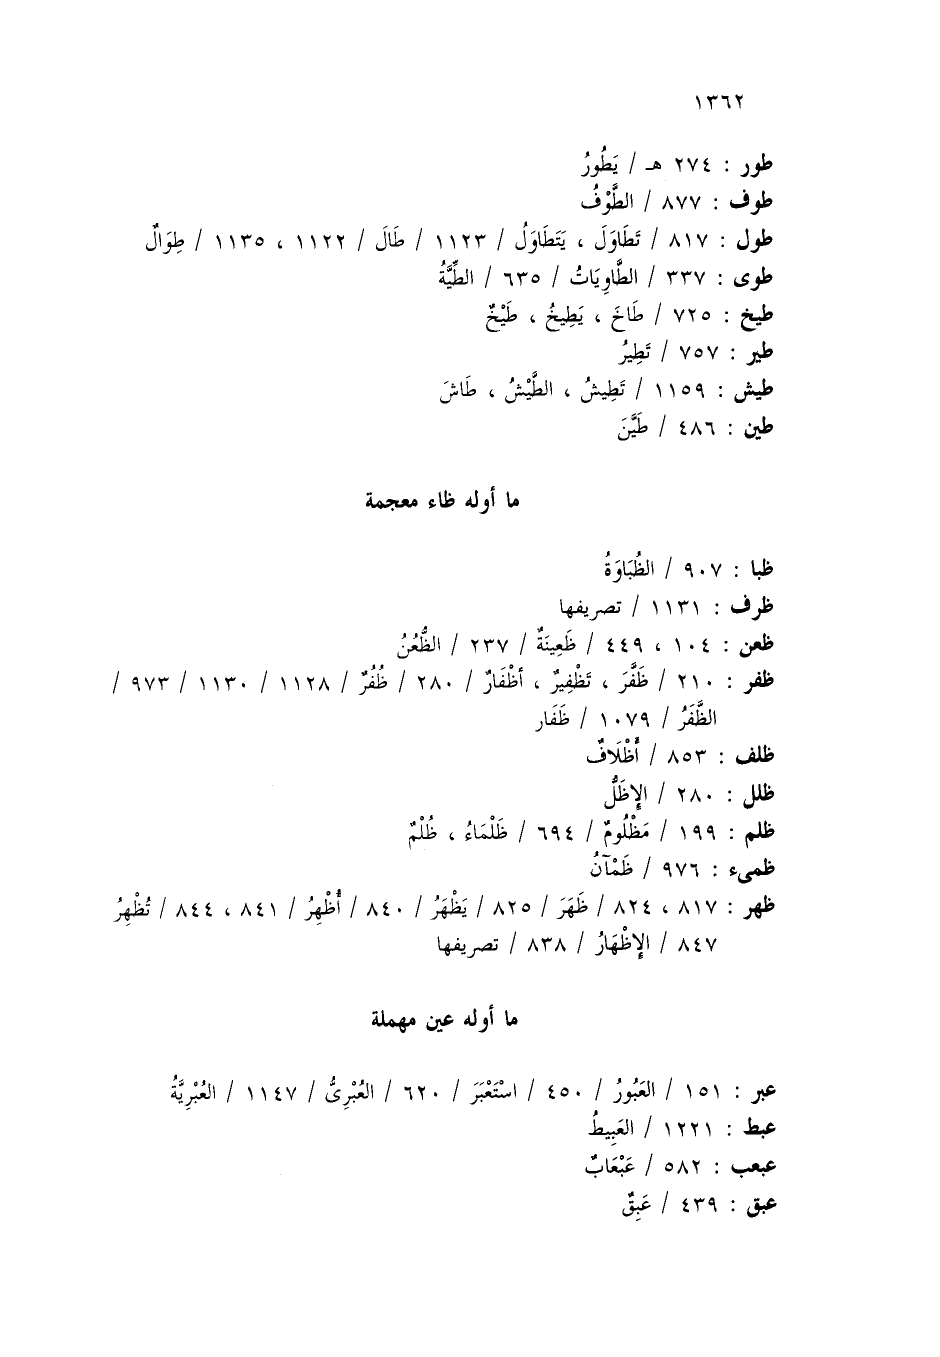 ١٣٦٢
طور : ٢٧٤ هـ / يَطُورُ
طوف : ٨٧٧ / الطَّوْفُ
طول : ٨١٧ / تَطَاوَلَ ، يَتَطَاوَلُ / ١١٢٣ / طَالَ / ١١٢٢ ، ١١٣٥ / طِوَالٌ
طوى : ٣٣٧ / الطَّاوِيَاتُ / ٦٣٥ / الطِّيَّةُ
طيخ : ٧٢٥ / طَاخَ ، يَطِيخُ ، طَيْخٌ
طير : ٧٥٧ / تَطِيرُ
طيش : ١١٥٩ / تَطِيشُ ، الطَّيْشُ ، طَاشَ
طين : ٤٨٦ / طَيَّنَ
ما أوله ظاء معجمة
ظبا : ٩٠٧ / الظُبَاوَةُ
ظرف : ١١٣١ / تصريفها
ظعن : ١٠٤ ، ٤٤٩ / ظَعِينَةٌ / ٢٣٧ / الظُّعُنُ
ظفر : ٢١٠ / ظَفَّرَ ، تَظْفِيرٌ ، أظْفَارٌ / ٢٨٠ / ظُفُرٌ / ١١٢٨ / ١١٣٠ / ٩٧٣ /
الظَّفَرُ / ١٠٧٩ / ظَفَار
ظلف : ٨٥٣ / أَظْلَافٌ
ظلل : ٢٨٠ / الإِظَلُّ
ظلم : ١٩٩ / مَظْلُومٌ / ٦٩٤ / ظَلْمَاءُ ، ظُلْمٌ
ظمىء : ٩٧٦ / ظَمْآنُ
ظهر : ٨١٧ ، ٨٢٤ / ظَهَرَ / ٨٢٥ / يَظْهَرُ / ٨٤٠ / أُظْهِرُ / ٨٤١ ، ٨٤٤ / تُظْهِرُ
٨٤٧ / الإِظْهَارُ / ٨٣٨ / تصريفها
ما أوله عين مهملة
عبر : ١٥١ / العَبُورُ / ٤٥٠ / اسْتَعْبَرَ / ٦٢٠ / العُبْرِىُّ / ١١٤٧ / العُبْرِيَّةُ
عبط : ١٢٢١ / العَبِيطُ
عبعب : ٥٨٢ / عَبْعَابٌ
عبق : ٤٣٩ / عَبِقٌ